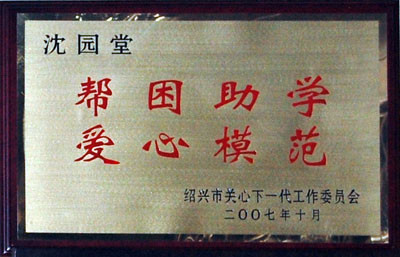 沈园堂
帮困助学
爱心模范
绍兴市关心下一代工作委员会
二〇〇七年十月